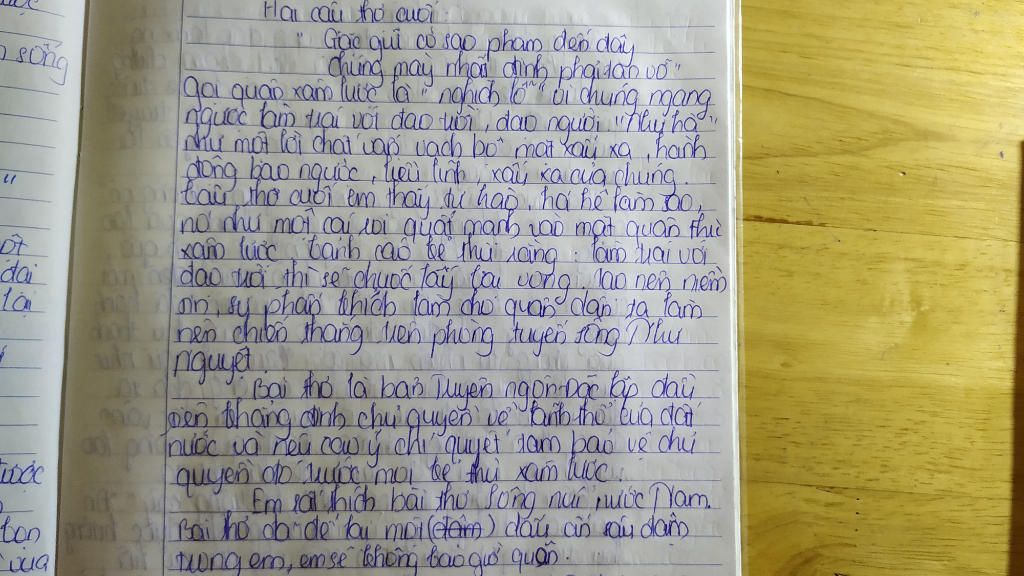 ước
n sống
"
ột
dại
lại
í
tước
n
tọn
vừa
Hai câu thơ cuối:
" Giặc giữ cớ sao phạm đến đây
Chúng mày nhất định phải tan vỡ"
Gọi quân xâm lược là "nghịch lỗ" bởi chúng ngang
ngược làm trái với đạo trời, đạo người. "Như hà"
như một lời chất vấn vạch bộ mặt xấu xa, hành
động bạo ngược, liều lĩnh, xấu xa của chúng.
Câu thơ cuối em thấy tự hào, hả hê làm sao,
nó như một cái roi quất mạnh vào mặt quân thù
xâm lược cảnh cáo kẻ thù rằng: làm trái với
đạo trời thì sẽ chuốc lấy bại vong, tạo nên niềm
tin, sự phấn khích làm cho quân dân ta làm
nên chiến thắng trên phòng tuyến sông Như
nguyệt
Bài thơ là bản Tuyên ngôn Độc lập đầu
tiên khẳng định chủ quyền về lãnh thổ của đất
nước và nêu cao ý chí quyết tâm bảo vệ chủ
quyền đó trước mọi kẻ thù xâm lược.
Em rất thích bài thơ Sông núi nước Nam.
Bài thơ đã để lại một (đậm) dấu ấn sâu đậm
trong em, em sẽ không bao giờ quên.